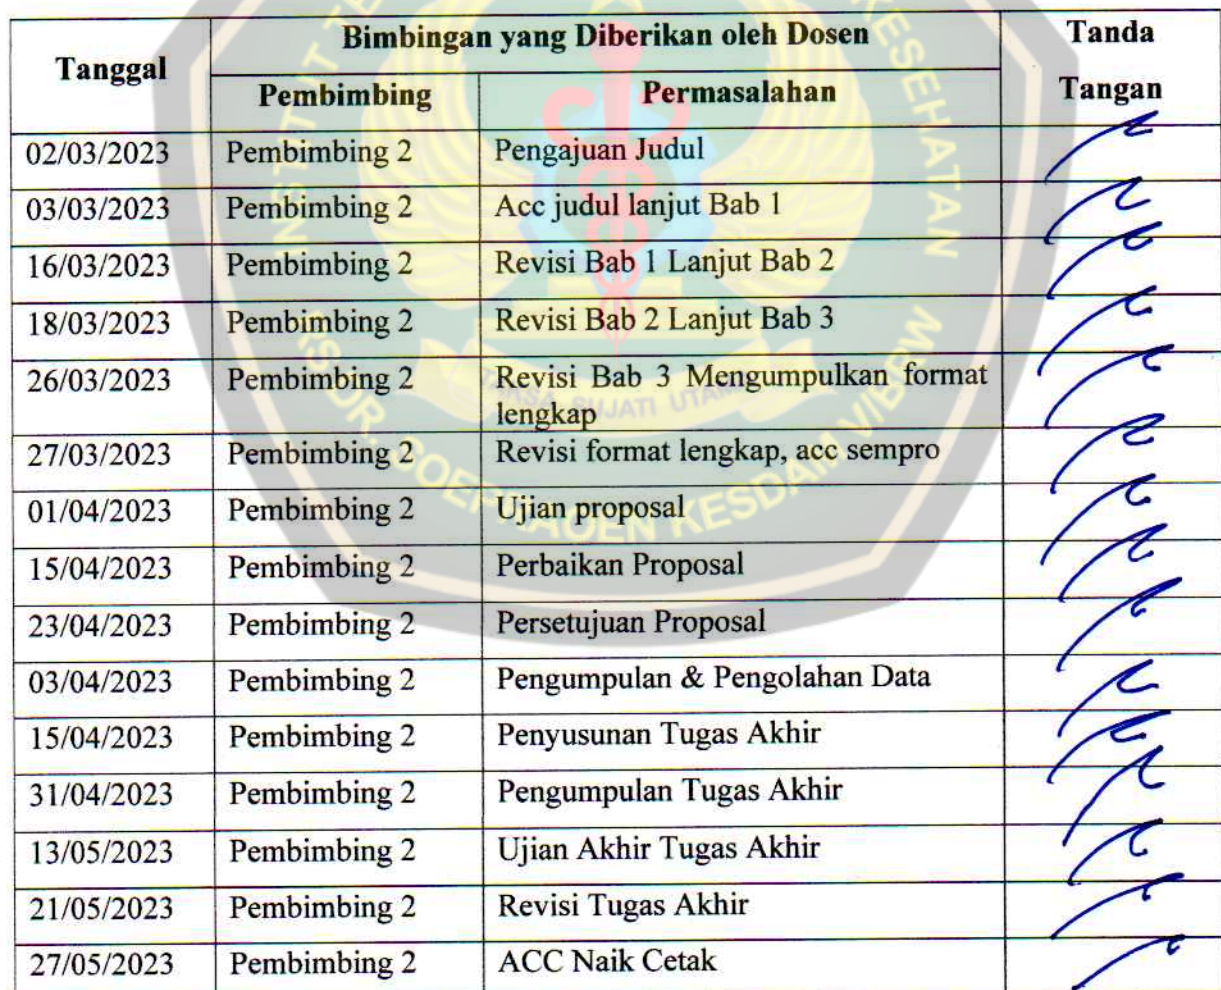 Tanggal Bimbingan yang Diberikan oleh Dosen Tanda Tangan
Pembimbing Permasalahan
02/03/2023 Pembimbing 2 Pengajuan Judul
03/03/2023 Pembimbing 2 Acc judul lanjut Bab 1
16/03/2023 Pembimbing 2 Revisi Bab 1 Lanjut Bab 2
18/03/2023 Pembimbing 2 Revisi Bab 2 Lanjut Bab 3
26/03/2023 Pembimbing 2 Revisi Bab 3 Mengumpulkan format
lengkap
27/03/2023 Pembimbing 2 Revisi format lengkap, acc sempro
01/04/2023 Pembimbing 2 Ujian proposal
15/04/2023 Pembimbing 2 Perbaikan Proposal
23/04/2023 Pembimbing 2 Persetujuan Proposal
03/04/2023 Pembimbing 2 Pengumpulan & Pengolahan Data
15/04/2023 Pembimbing 2 Penyusunan Tugas Akhir
31/04/2023 Pembimbing 2 Pengumpulan Tugas Akhir
13/05/2023 Pembimbing 2 Ujian Akhir Tugas Akhir
21/05/2023 Pembimbing 2 Revisi Tugas Akhir
27/05/2023 Pembimbing 2 ACC Naik Cetak
KESEHATAN
SUJATI
KESDAM V/BRW